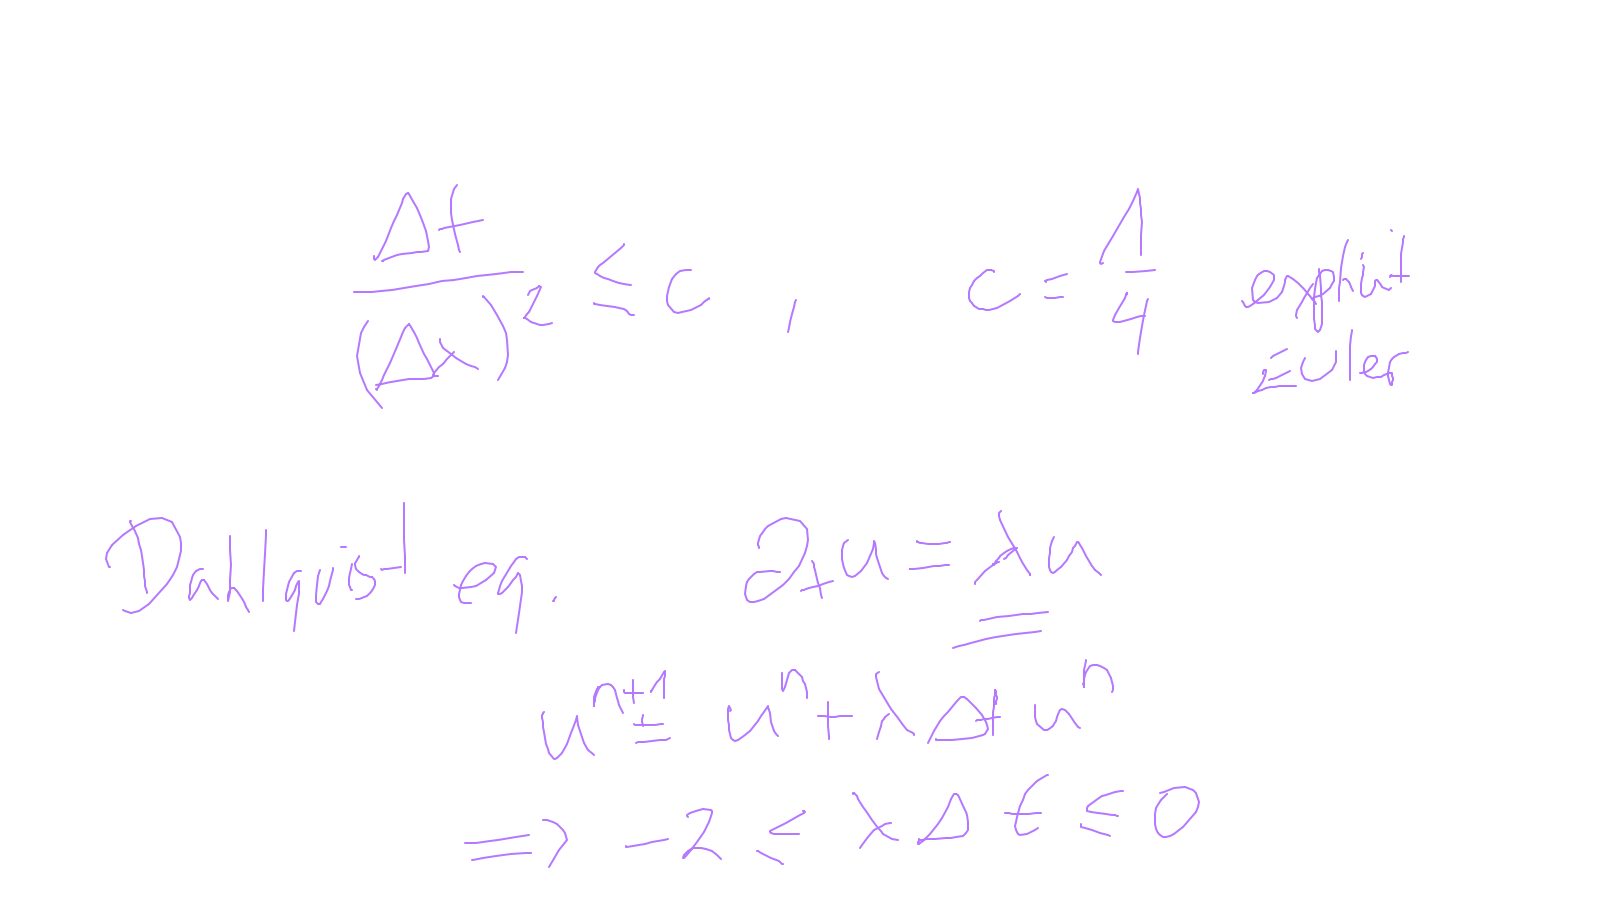 Δt/(Δx)² ≤ c , c = 1/4 explicit Euler
Dahlquist eq. ∂ₜu = λu
uⁿ⁺¹ = uⁿ + λΔt uⁿ
⇒ -2 ≤ λΔt ≤ 0